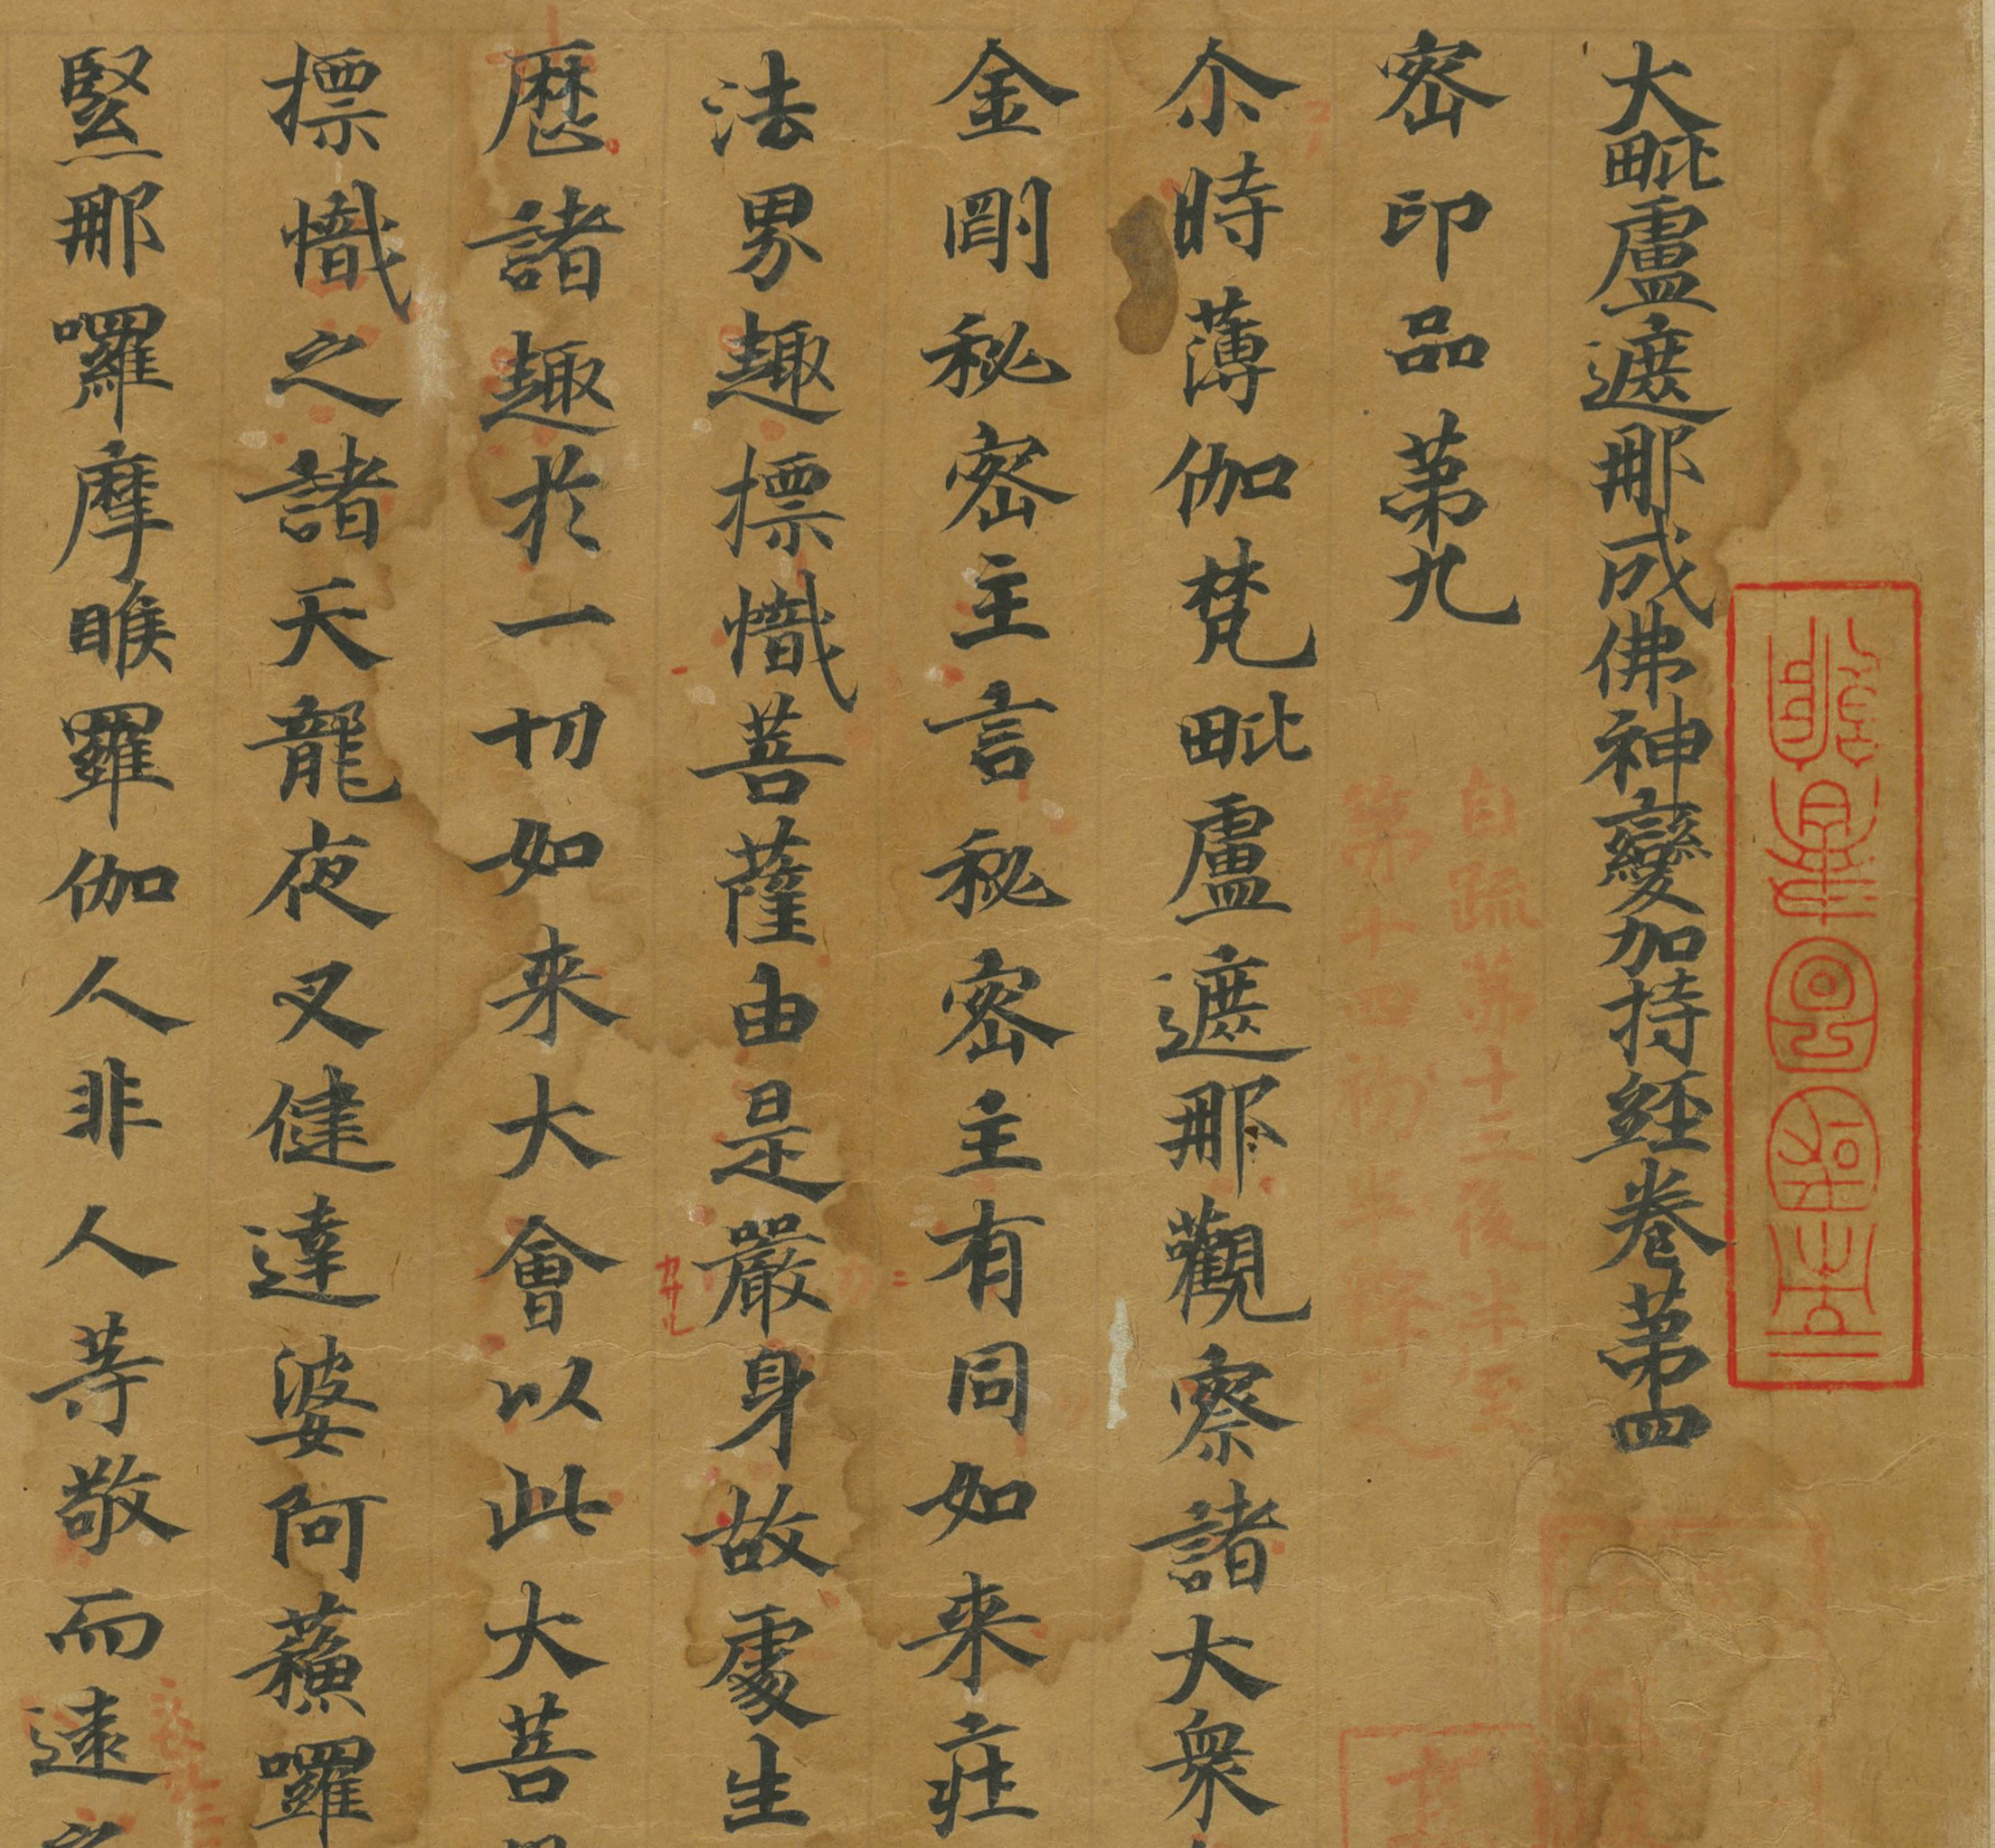 大毗盧遮那成佛神變加持經卷第四
密印品第九
自疏第十三後半至
第十四初半釋之
尒時薄伽梵毗盧遮那觀察諸大衆
金剛秘密主言秘密主有同如来莊
法界趣摽幟菩薩由是嚴身故處生
歷諸趣於一切如来大會以此大菩
摽幟之諸天龍夜叉健達婆阿蘓囉
緊那囉摩睺羅伽人非人等敬而遠之